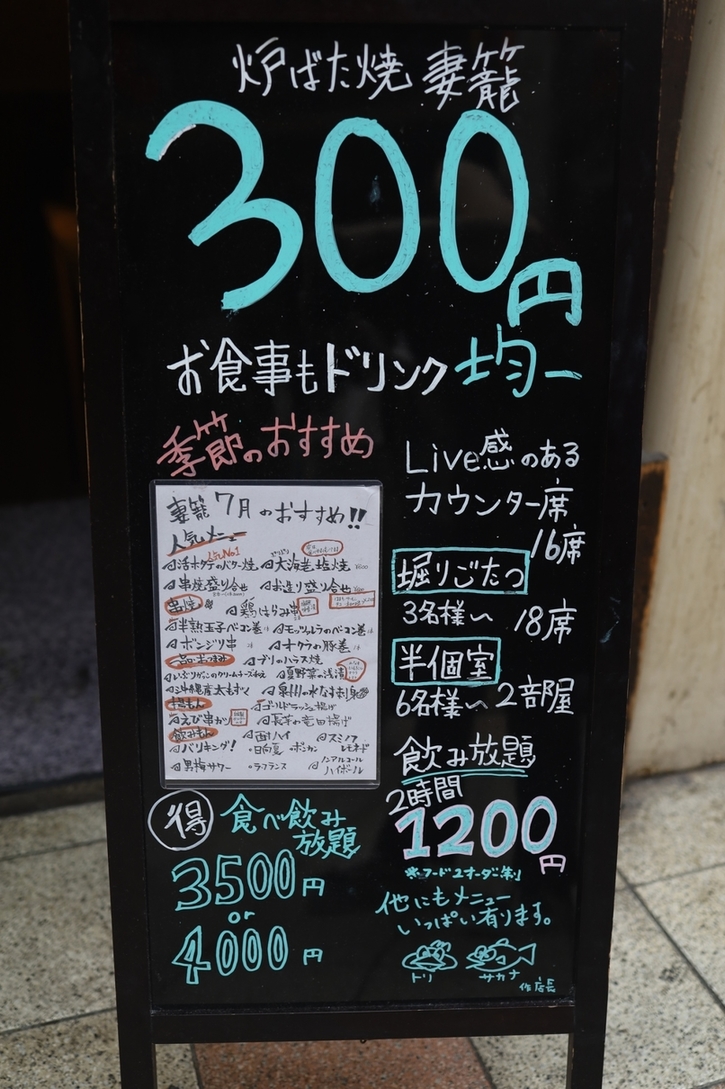 炉ばた焼 妻籠
300円
お食事もドリンク均一
季節のおすすめ
妻籠 7月 のおすすめ!!
人気メニュー
人気No.1
活ホタテのバター焼
大海老塩焼
串焼盛り合せ
お造り盛り合せ
串焼き
鶏はらみ串
半熟玉子ベーコン巻
モッツァレラのベーコン巻
ボンジリ串
オクラの豚巻
一品おつまみ
ブリのハラス焼
いぶりがっこのクリームチーズ和え
夏野菜の浅漬
沖縄県産太もずく
泉州の水なす刺身
揚もん
ゴールドラッシュ揚げ
えび串かつ
長芋の竜田揚げ
飲みもん
酎ハイ
スミノフ
バリキング!
日向夏
ポンカン
レモネード
黒梅サワー
ラフランス
ノンアルコール
ハイボール
Live感のある
カウンター席
16席
堀りごたつ
3名様〜 18席
半個室
6名様〜 2部屋
飲み放題
2時間
1200円
※フード2オーダー制
得 食べ飲み
放題
3500円
or
4000円
他にもメニュー
いっぱい有ります。
トリ サカナ
作 店長